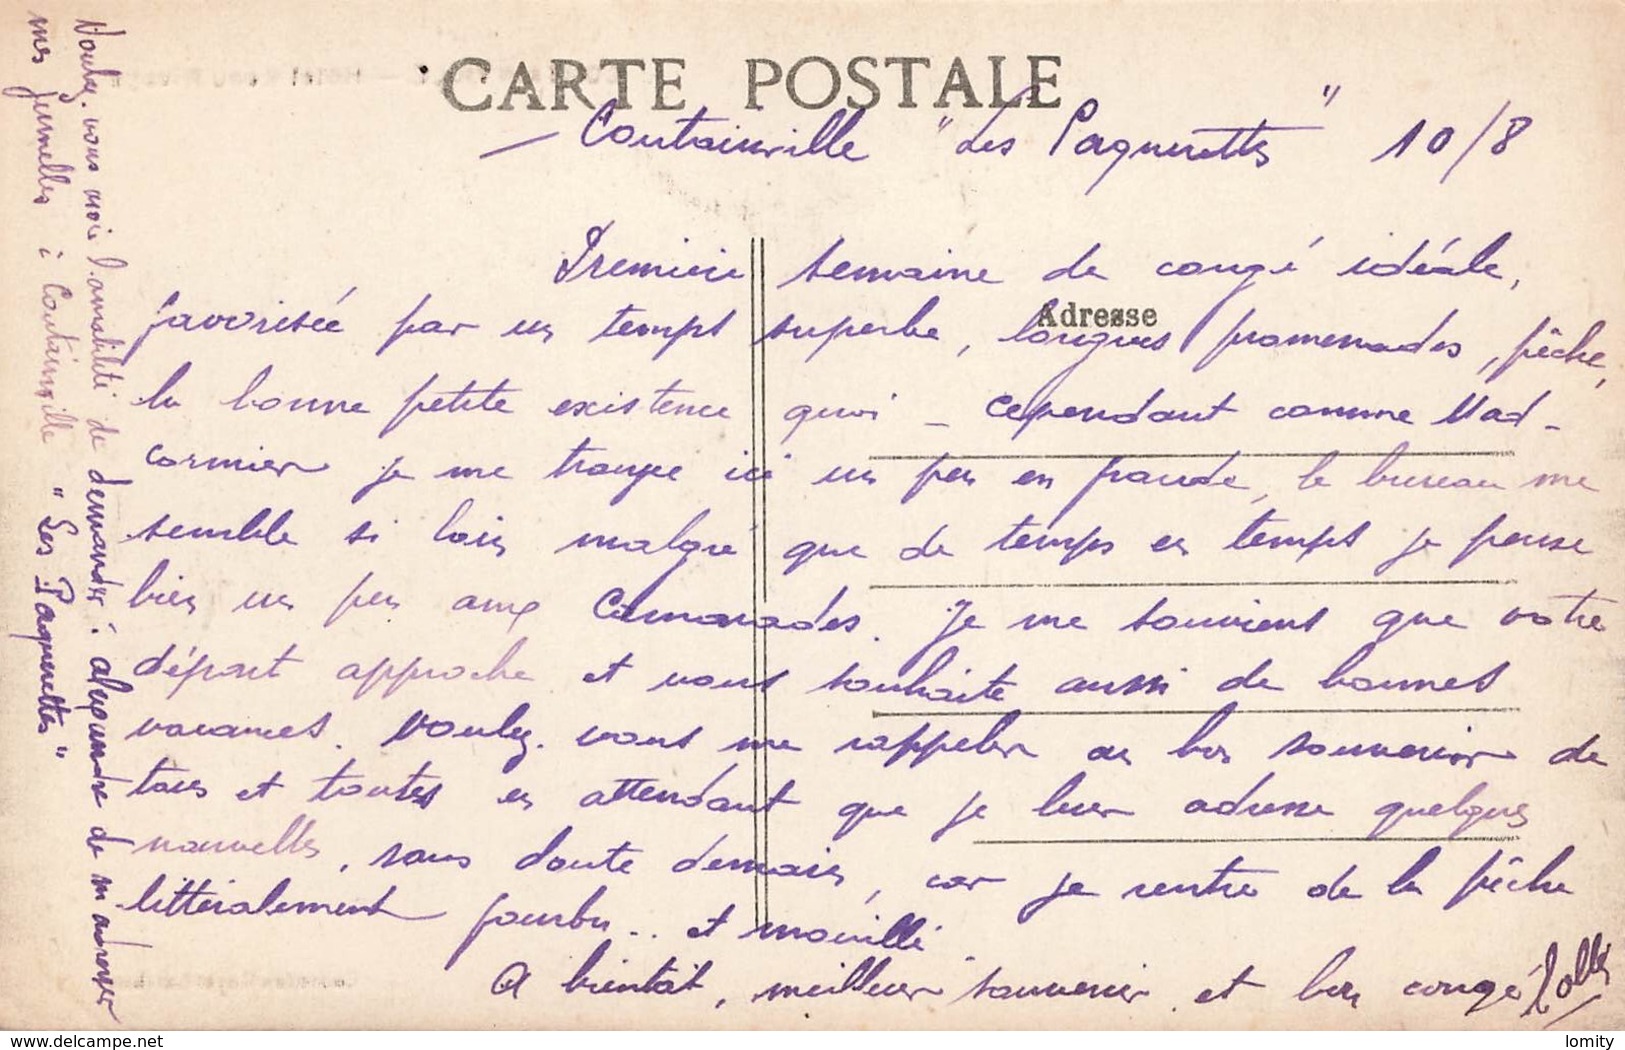 CARTE POSTALE
Coutainville "Les Paquerettes" 10/8
Première semaine de congé idéale,
Adresse
favorisée par un temps superbe, longues promenades, pêche,
la bonne petite existence quoi – cependant comme Mad-
cormier je me trouve ici un peu en fraude, le bureau me
semble si loin malgré que de temps en temps je pense
bien un peu aux camarades. Je me souviens que votre
départ approche et vous souhaite aussi de bonnes
vacances. Voulez-vous me rappeler au bon souvenir de
tous et toutes en attendant que je leur adresse quelques
nouvelles, sans doute demain, car je rentre de la pêche
littéralement fourbu... et mouillé
A bientôt, meilleur souvenir et bon congé
Voulez-vous avoir l'amabilité de demander à Alexandre de m'adresser
mes jumelles à Coutainville "Les Paquerettes"
delcampe.net
lomity